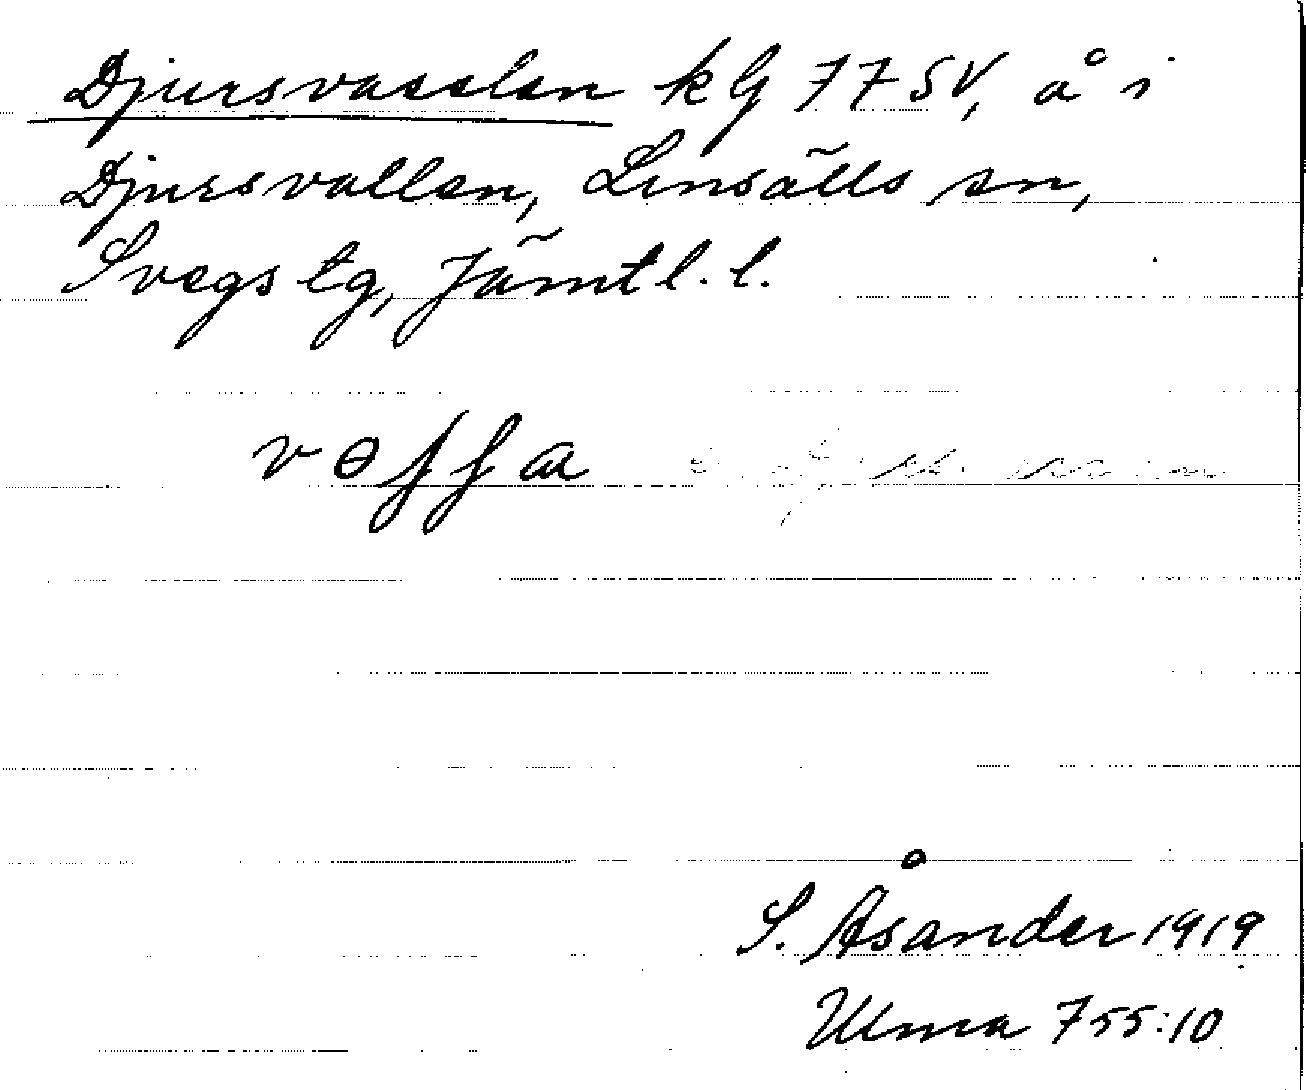 Djursvasslan kbl 77 SV, å i
Djursvallen, Linsälls sn,
Svegs tg, Jämtl. l.
S. Åsander 1919
Ulma 755:10